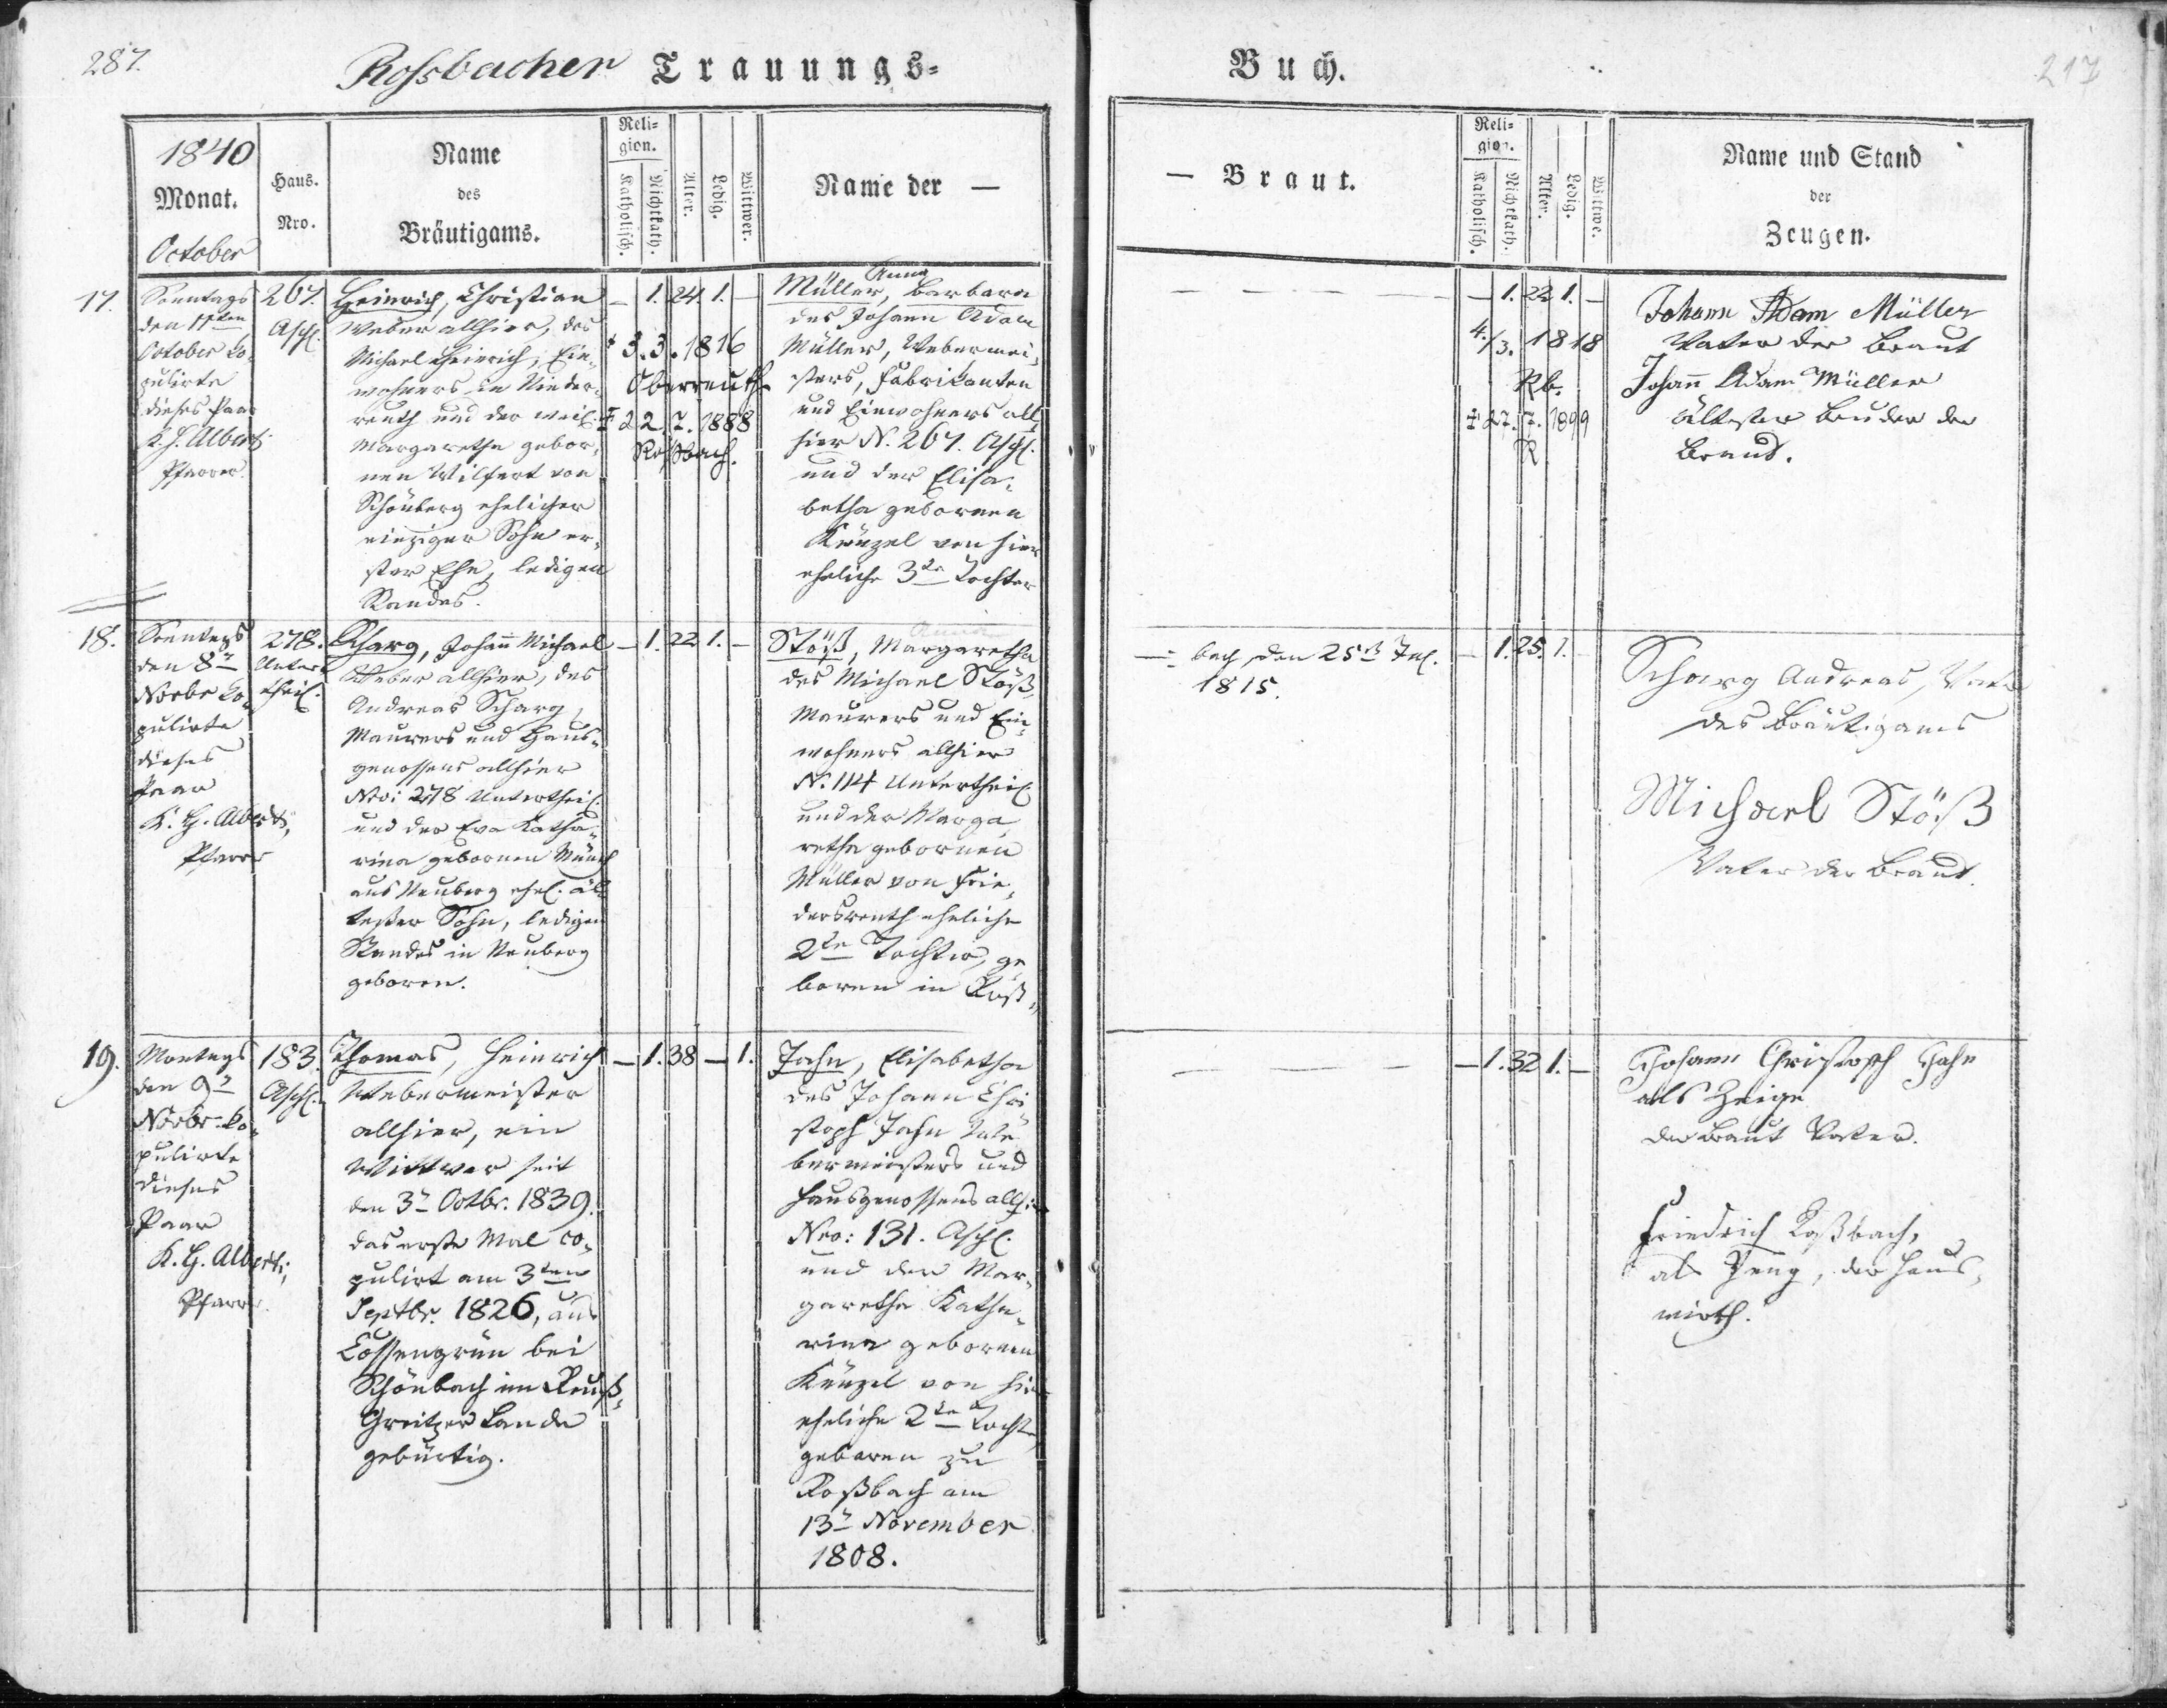 287.
Rossbacher Trauungs=
Buch.
217
1840
Monat.
October
Haus.
Nro.
Name
des
Bräutigams.
Reli=
gion.
Katholisch.
Nichtkath.
Alter.
Ledig.
Wittwer.
Name der —
— Braut.
Reli=
gion.
Katholisch.
Nichtkath.
Alter.
Ledig.
Wittwe.
Name und Stand
der
Zeugen.
17.
Sonntags
den 11ten
October co-
pulirte
dieses Paar
K. G. Alberti
Pfarrer.
267.
Asch.
Heinrich, Christian
Weber allhier, des
Michael Heinrich, Ein-
wohners in Nieder-
reuth und der weil.
Margaretha gebor-
nen Wilfert von
Schönberg ehelicher
einziger Sohn er-
ster Ehe, ledigen
Standes.
— 1. 24. 1. —
* 3. 3. 1816
Oberreuth
‡ 22. 7. 1888
Roßbach.
Anna
Müller, Barbara
des Johann Adam
Müller, Webermei-
sters, Fabrikanten
und Einwohners all-
hier N. 267. Asch.
und der Elisa-
betha gebornen
Künzel von hier
eheliche 3te Tochter
— 1. 22. 1. —
4./3. 1818
Rb.
‡ 27. 7. 1899
R
Johann Adam Müller
Vater der Braut
Johann Adam Müller
ältester Bruder der
Braut.
18.
Sonntags
den 8t
Novbr co-
pulirte
dieses
Paar
K. G. Alberti,
Pfarrer
278.
Unter-
theil.
Scharg, Johann Michael
Weber allhier, des
Andreas Scharg,
Maurers und Haus-
genossens allhier
Nro: 278 Untertheil.
und der Eva Katha-
rina gebornen Münch
aus Neuberg ehel. äl-
tester Sohn, ledigen
Standes in Neuberg
geboren.
— 1. 22. 1. —
Anna
Stöß, Margaretha
des Michael Stöß,
Maurers und Ein-
wohners allhier
N. 114 Untertheil
und der Marga-
retha gebornen
Müller von Frie-
dersreuth eheliche
2te Tochter, ge-
boren in Roß-
—: bach den 25t Jul.
1815.
— 1. 25. 1. —
Scharg Andreas, Vater
des Bräutigams
Michael Stöß
Vater der Braut.
19.
Montags
den 9t
Novbr. co-
pulirte
dieses
Paar
K. G. Alberti,
Pfarrer.
183.
Asch.
Thomas, Heinrich
Webermeister
allhier, ein
Wittwer seit
den 3t Octbr. 1839.
das erste Mal co-
pulirt am 3ten
Septbr. 1826, aus
Cossengrün bei
Schönbach im Reuß-
Greitzer Lande
gebürtig.
— 1. 38 — 1.
Jahn, Elisabetha
des Johann Chri-
stoph Jahn We-
bermeisters und
Hausgenossens allhier
Nro: 131. Asch.
und der Mar-
garetha Katha-
rina gebornen
Künzel von hier
eheliche 2te Tochter
geboren zu
Roßbach am
13t November
1808.
— 1. 32 1. —
Johann Christoph Jahn
als Zeige
der Braut Vater.
Friedrich Roßbach,
als Zeug, der Haus-
wirth.